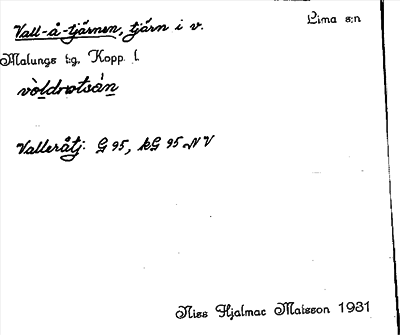 Vall-å-tjärnen, tjärn i v. Lima s:n
Malungs t:g, Kopp. l.
vòldrotsán
Valleråtj: G 95, kG 95 NV
Niss Hjalmar Matsson 1931